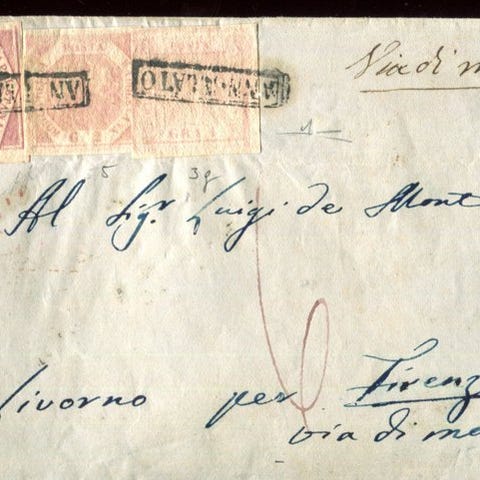 AN
ANNULLATO
GRANA
Via di m
1
5 3g
Al Sigr Luigi de Mont
6
Livorno per Firenz
via di me